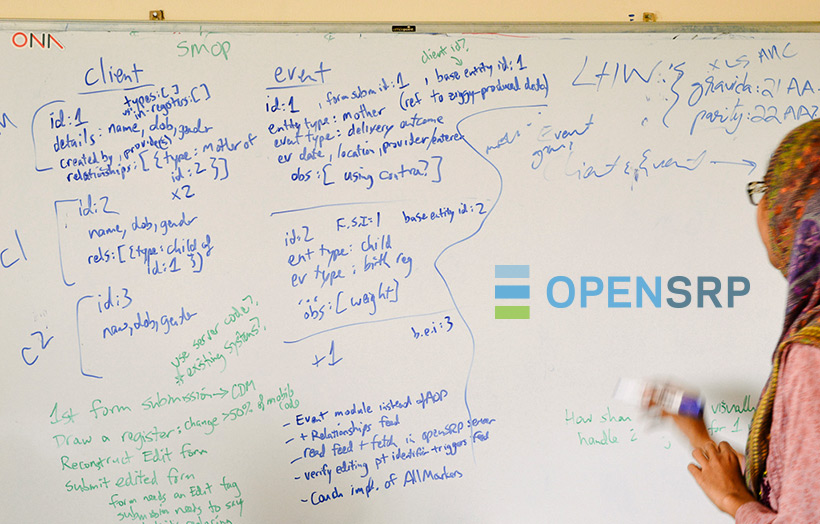 ONA
SMOP
client
types:[]
in-registers:[]
id:1
details: name, dob, gender
created by, provider(s)
relationships: [{type: mother of
id:2}]
x2
id:2
name, dob, gender
rels:[{type: child of
id:1 }]
c1
id:3
name, dob, gender
c2
use server code?
existing systems?
event
client id?
id:1 , form submid:1 , base entity id:1
entity type: mother (ref to ziggy-produced data)
event type: delivery outcome
ev date, location, provider/entered
obs:[ using contra?]
id:2 F.S.I=1 base entity id:2
ent type: child
ev type: birth reg
...
obs:[weight]
b.e.i:3
+1
LHW:{
ANC
gravida:21AA
parity:22AA
Event
Client & Event →
OPENSRP
1st form submission → CDM
Draw a register: change >50% of mobile
code
Reconstruct Edit form
Submit edited form
form needs an Edit tag
submission needs to say
- Event module instead of AOP
- + Relationships feed
- read feed + fetch in openSRP server
- verify editing pt identifier triggers feed
- Couch impl. of AllMarkers
How visually
handle 2 for 1